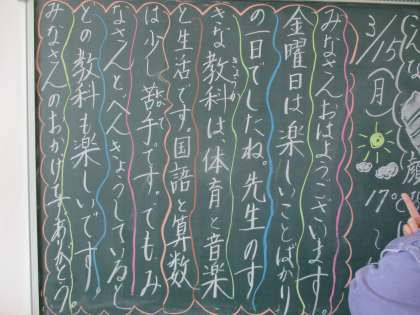 3/15(月)
17℃
みなさんおはようございます。
金曜日は楽しいことばかり
の一日でしたね。先生のす
きな教科は、体育と音楽
きょうか
と生活です。国語と算数
は少し苦手です。でもみ
にがて
なさんと、べんきょうしていると
どの教科も楽しいです。
みなさんのおかげです。ありがとう。